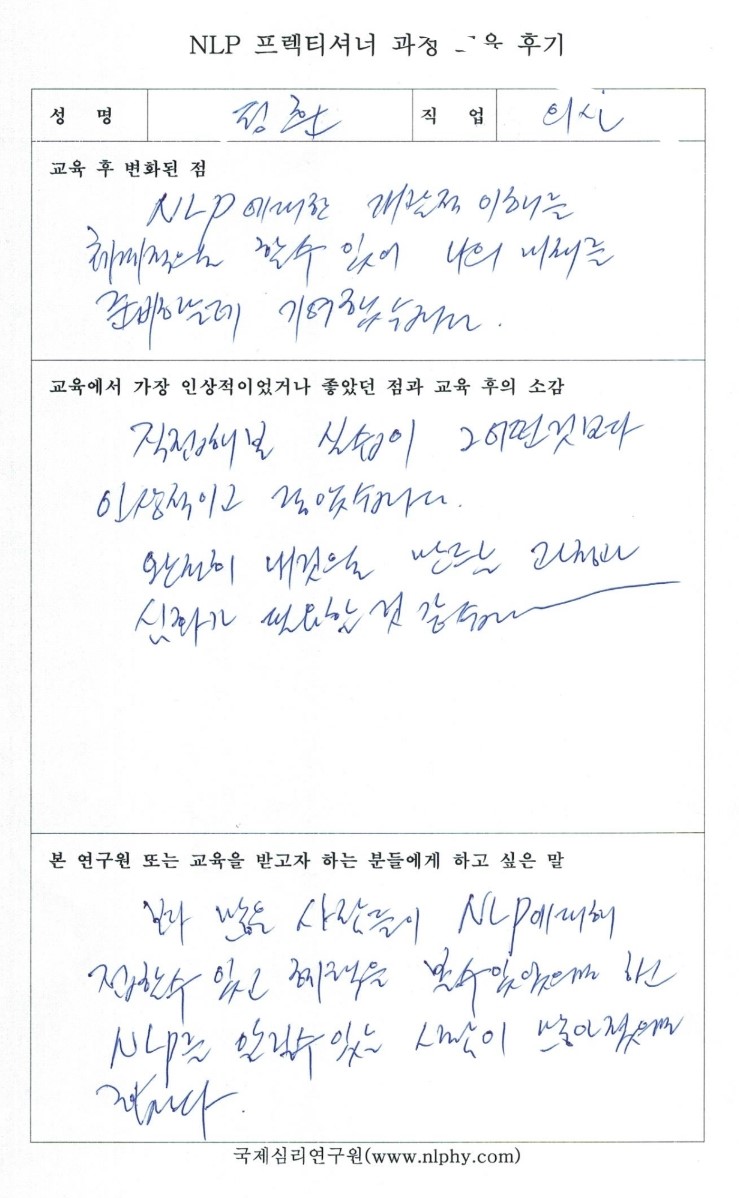 NLP 프렉티셔너 과정 육 후기
성 명 정환 직 업 의사
교육 후 변화된 점
NLP에대한 개괄적 이해를
체계적으로 할수 있어 나의 미래를
준비하는데 기여했습니다.
교육에서 가장 인상적이었거나 좋았던 점과 교육 후의 소감
직접해본 실습이 그어떤것보다
인상적이고 좋았습니다.
완전히 내것으로 만드는 과정과
심화가 필요할 것 같습니다
본 연구원 또는 교육을 받고자 하는 분들에게 하고 싶은 말
보다 많은 사람들이 NLP에대해
접할수 있고 혜택을 볼수있었으면 하고
NLP를 알릴수 있는 사람이 많아졌으면
합니다.
국제심리연구원(www.nlphy.com)